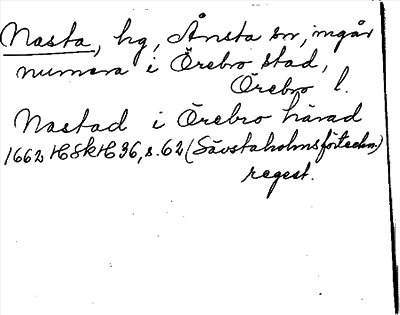 Nasta, hg, Ånsta sn, ingår
numera i Örebro stad,
Örebro l.
Nastad i Örebro härad
1662 HSkH 36, s. 62 (Sävstaholmsförteckn.)
regest.